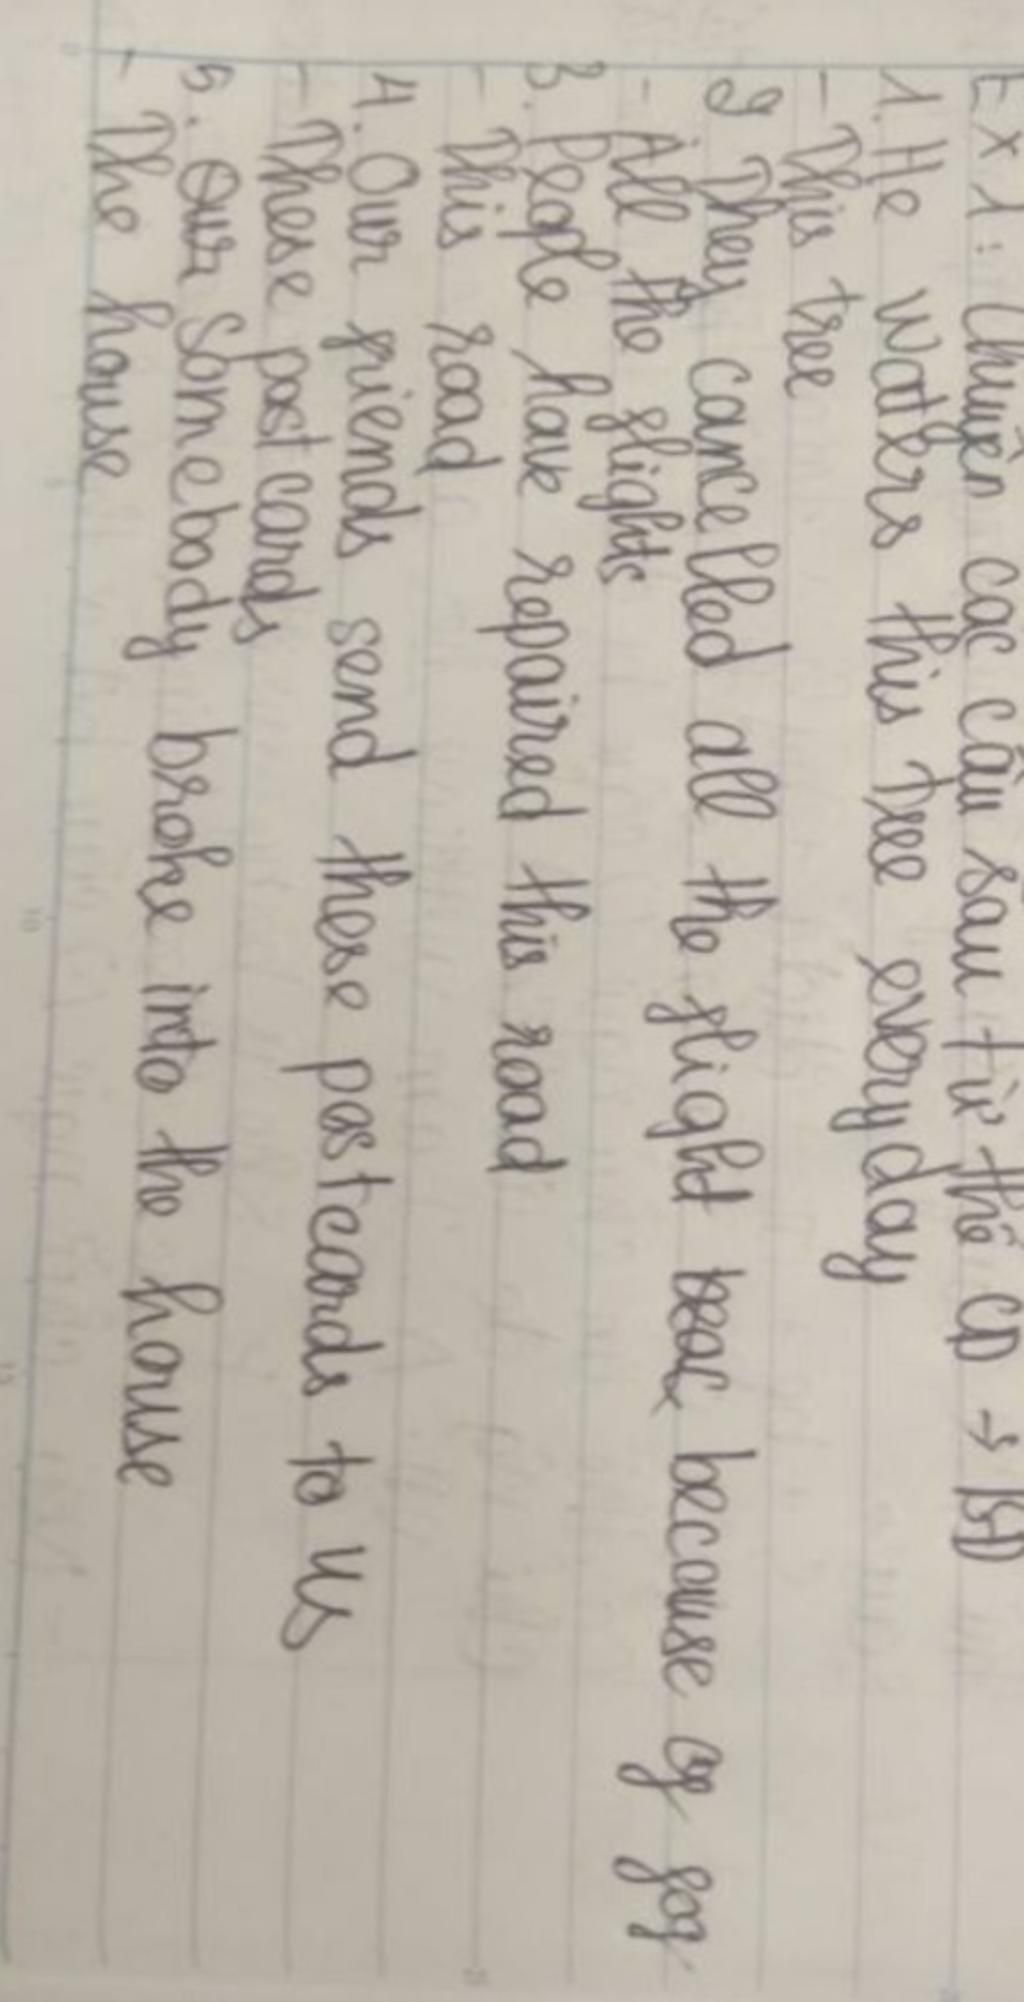 Ex 1: Chuyển các câu sau từ thể CĐ → BĐ
1. He waters this tree everyday
- This tree
2 They cancelled all the flight because of fog
- All the flights
3. People have repaired this road
- This road
4. Our friends send these postcards to us
- These postcards
5. Our Somebody broke into the house
- The house